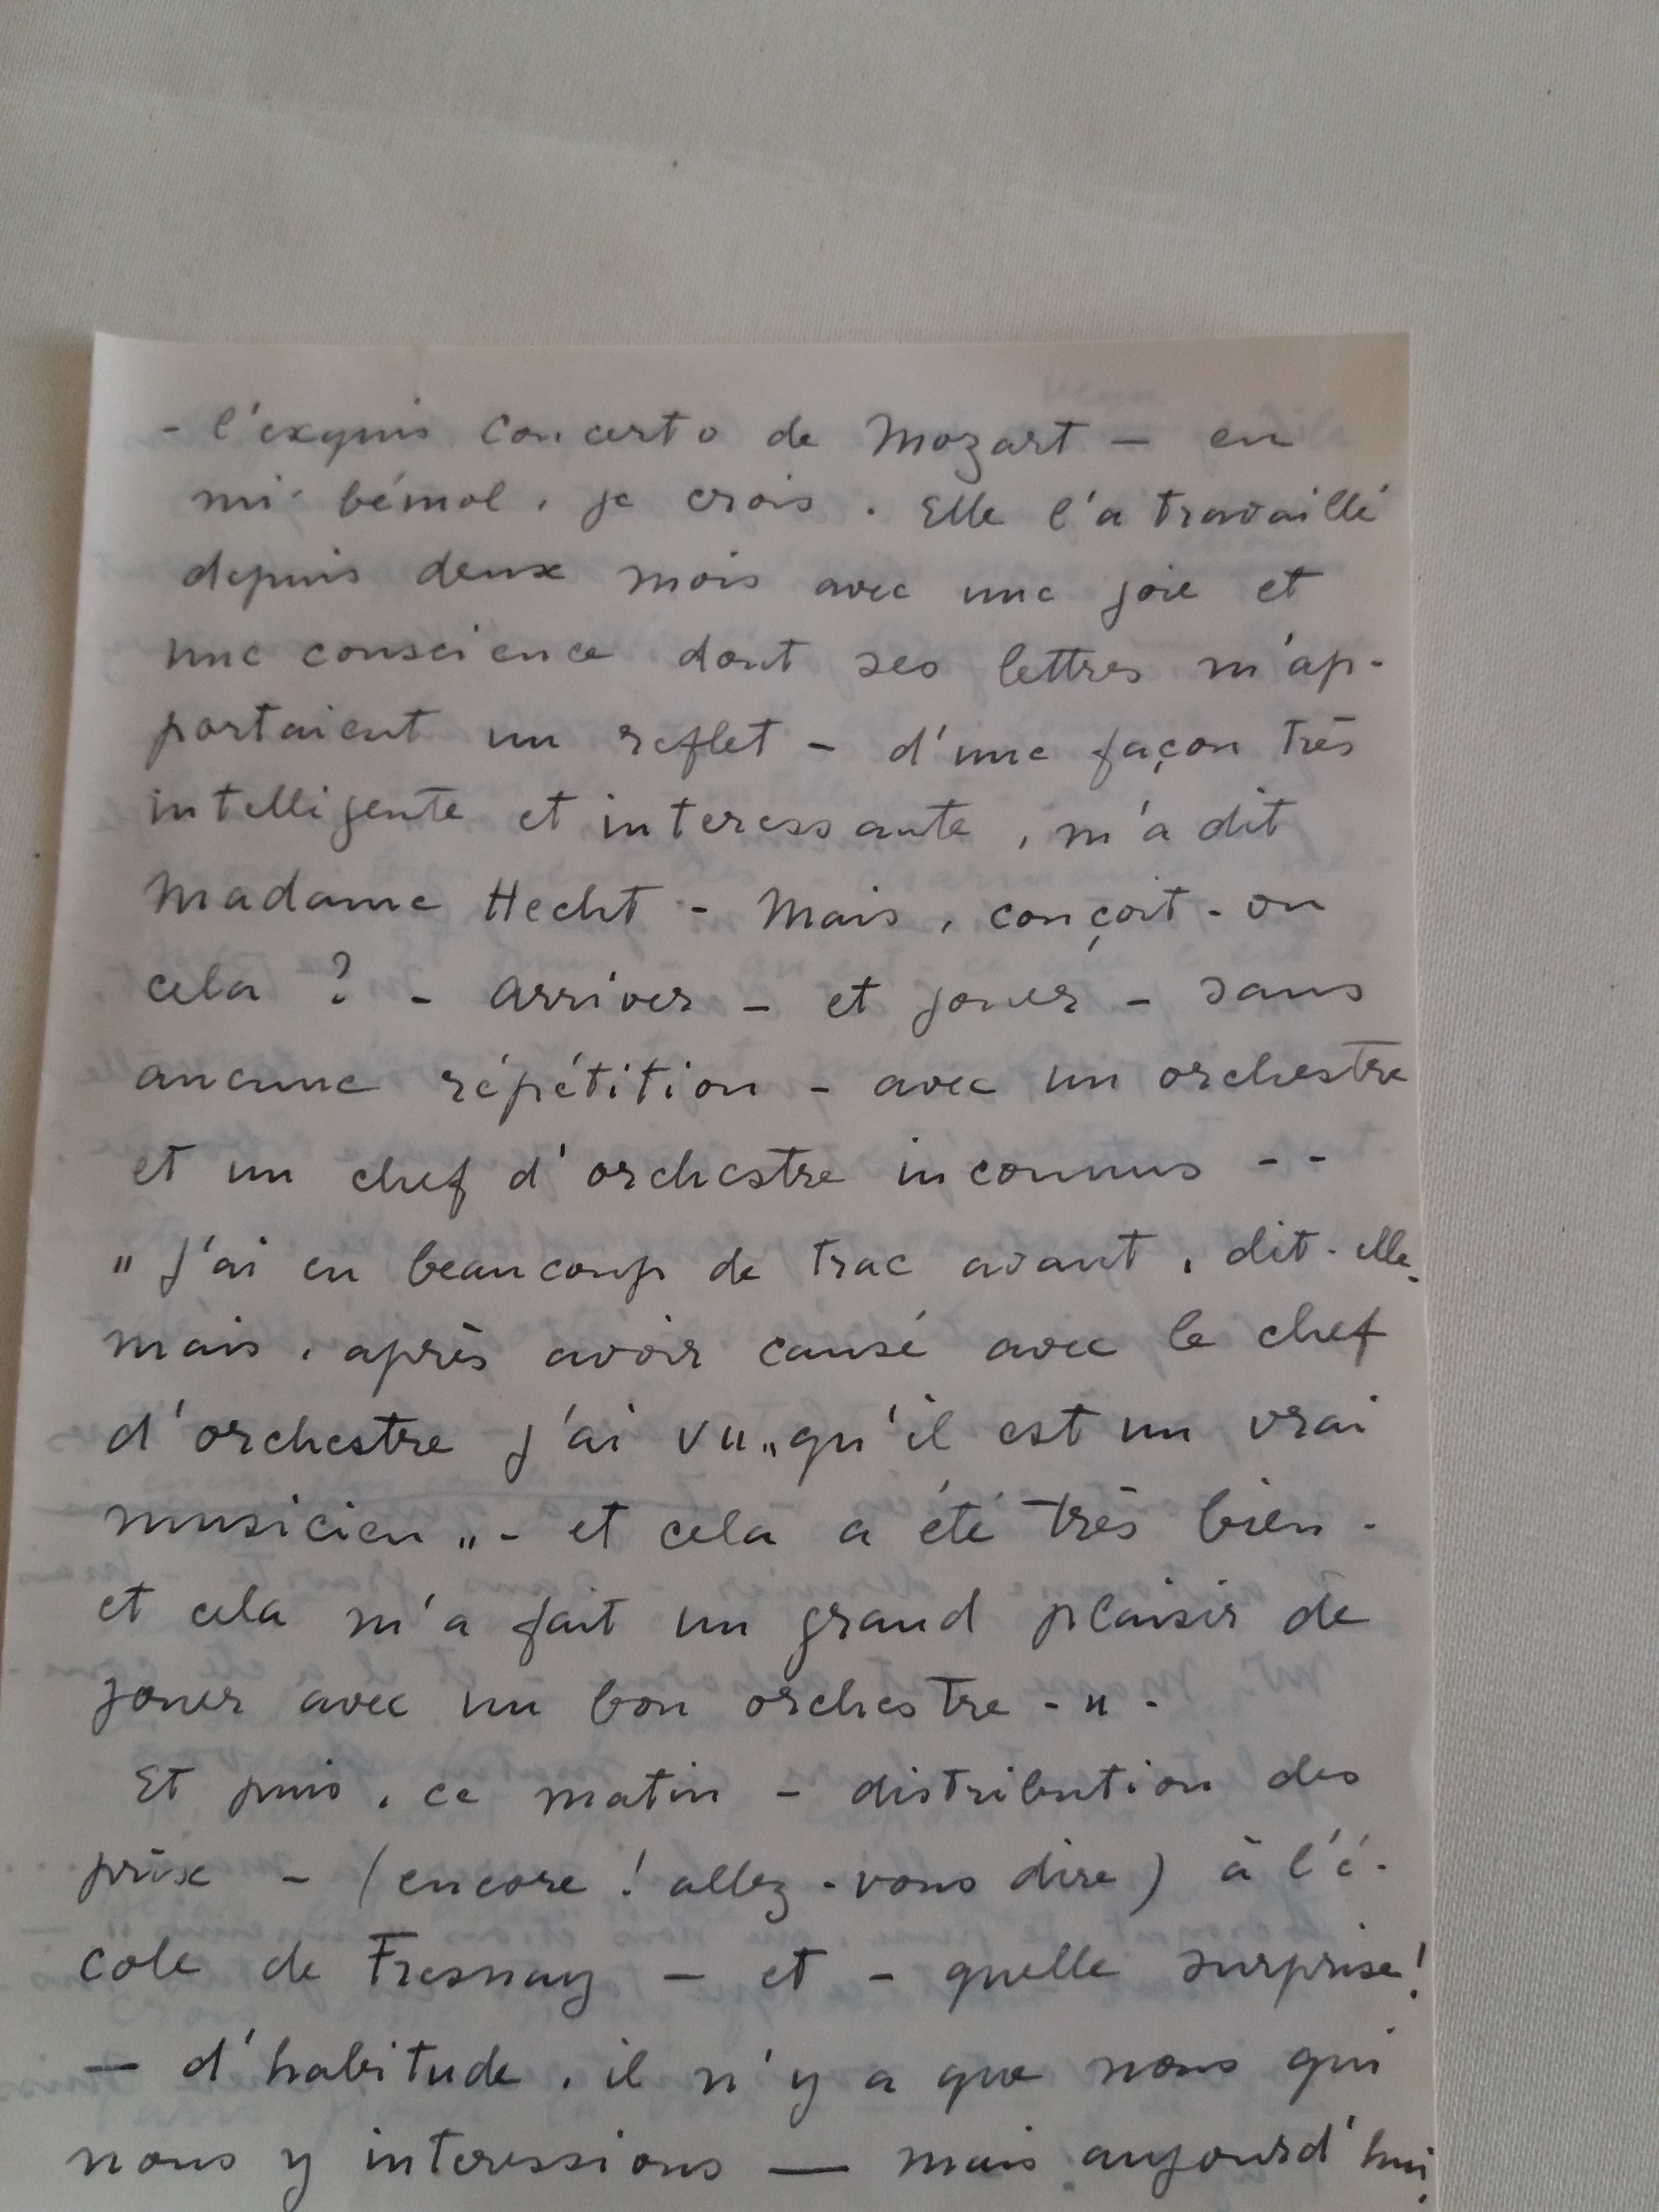 - l'exquis concerto de Mozart — en
mi bémol, je crois. Elle l'a travaillé
depuis deux mois avec une joie et
une conscience dont ses lettres m'ap-
portaient un reflet - d'une façon très
intelligente et interessante, m'a dit
Madame Hecht - Mais, conçoit-on
cela ? - Arriver - et jouer - sans
aucune répétition - avec un orchestre
et un chef d'orchestre inconnus - -
" J'ai eu beaucoup de trac avant, dit-elle,
mais, après avoir causé avec le chef
d'orchestre j'ai vu „qu'il est un vrai
musicien „ - et cela a été très bien -
et cela m'a fait un grand plaisir de
jouer avec un bon orchestre - " -
Et puis, ce matin - distribution des
prix - (encore ! allez-vous dire) à l'é-
cole de Fresnay — et - quelle surprise !
— d'habitude, il n'y a que nous qui
nous y interessions — mais aujourd'hui,